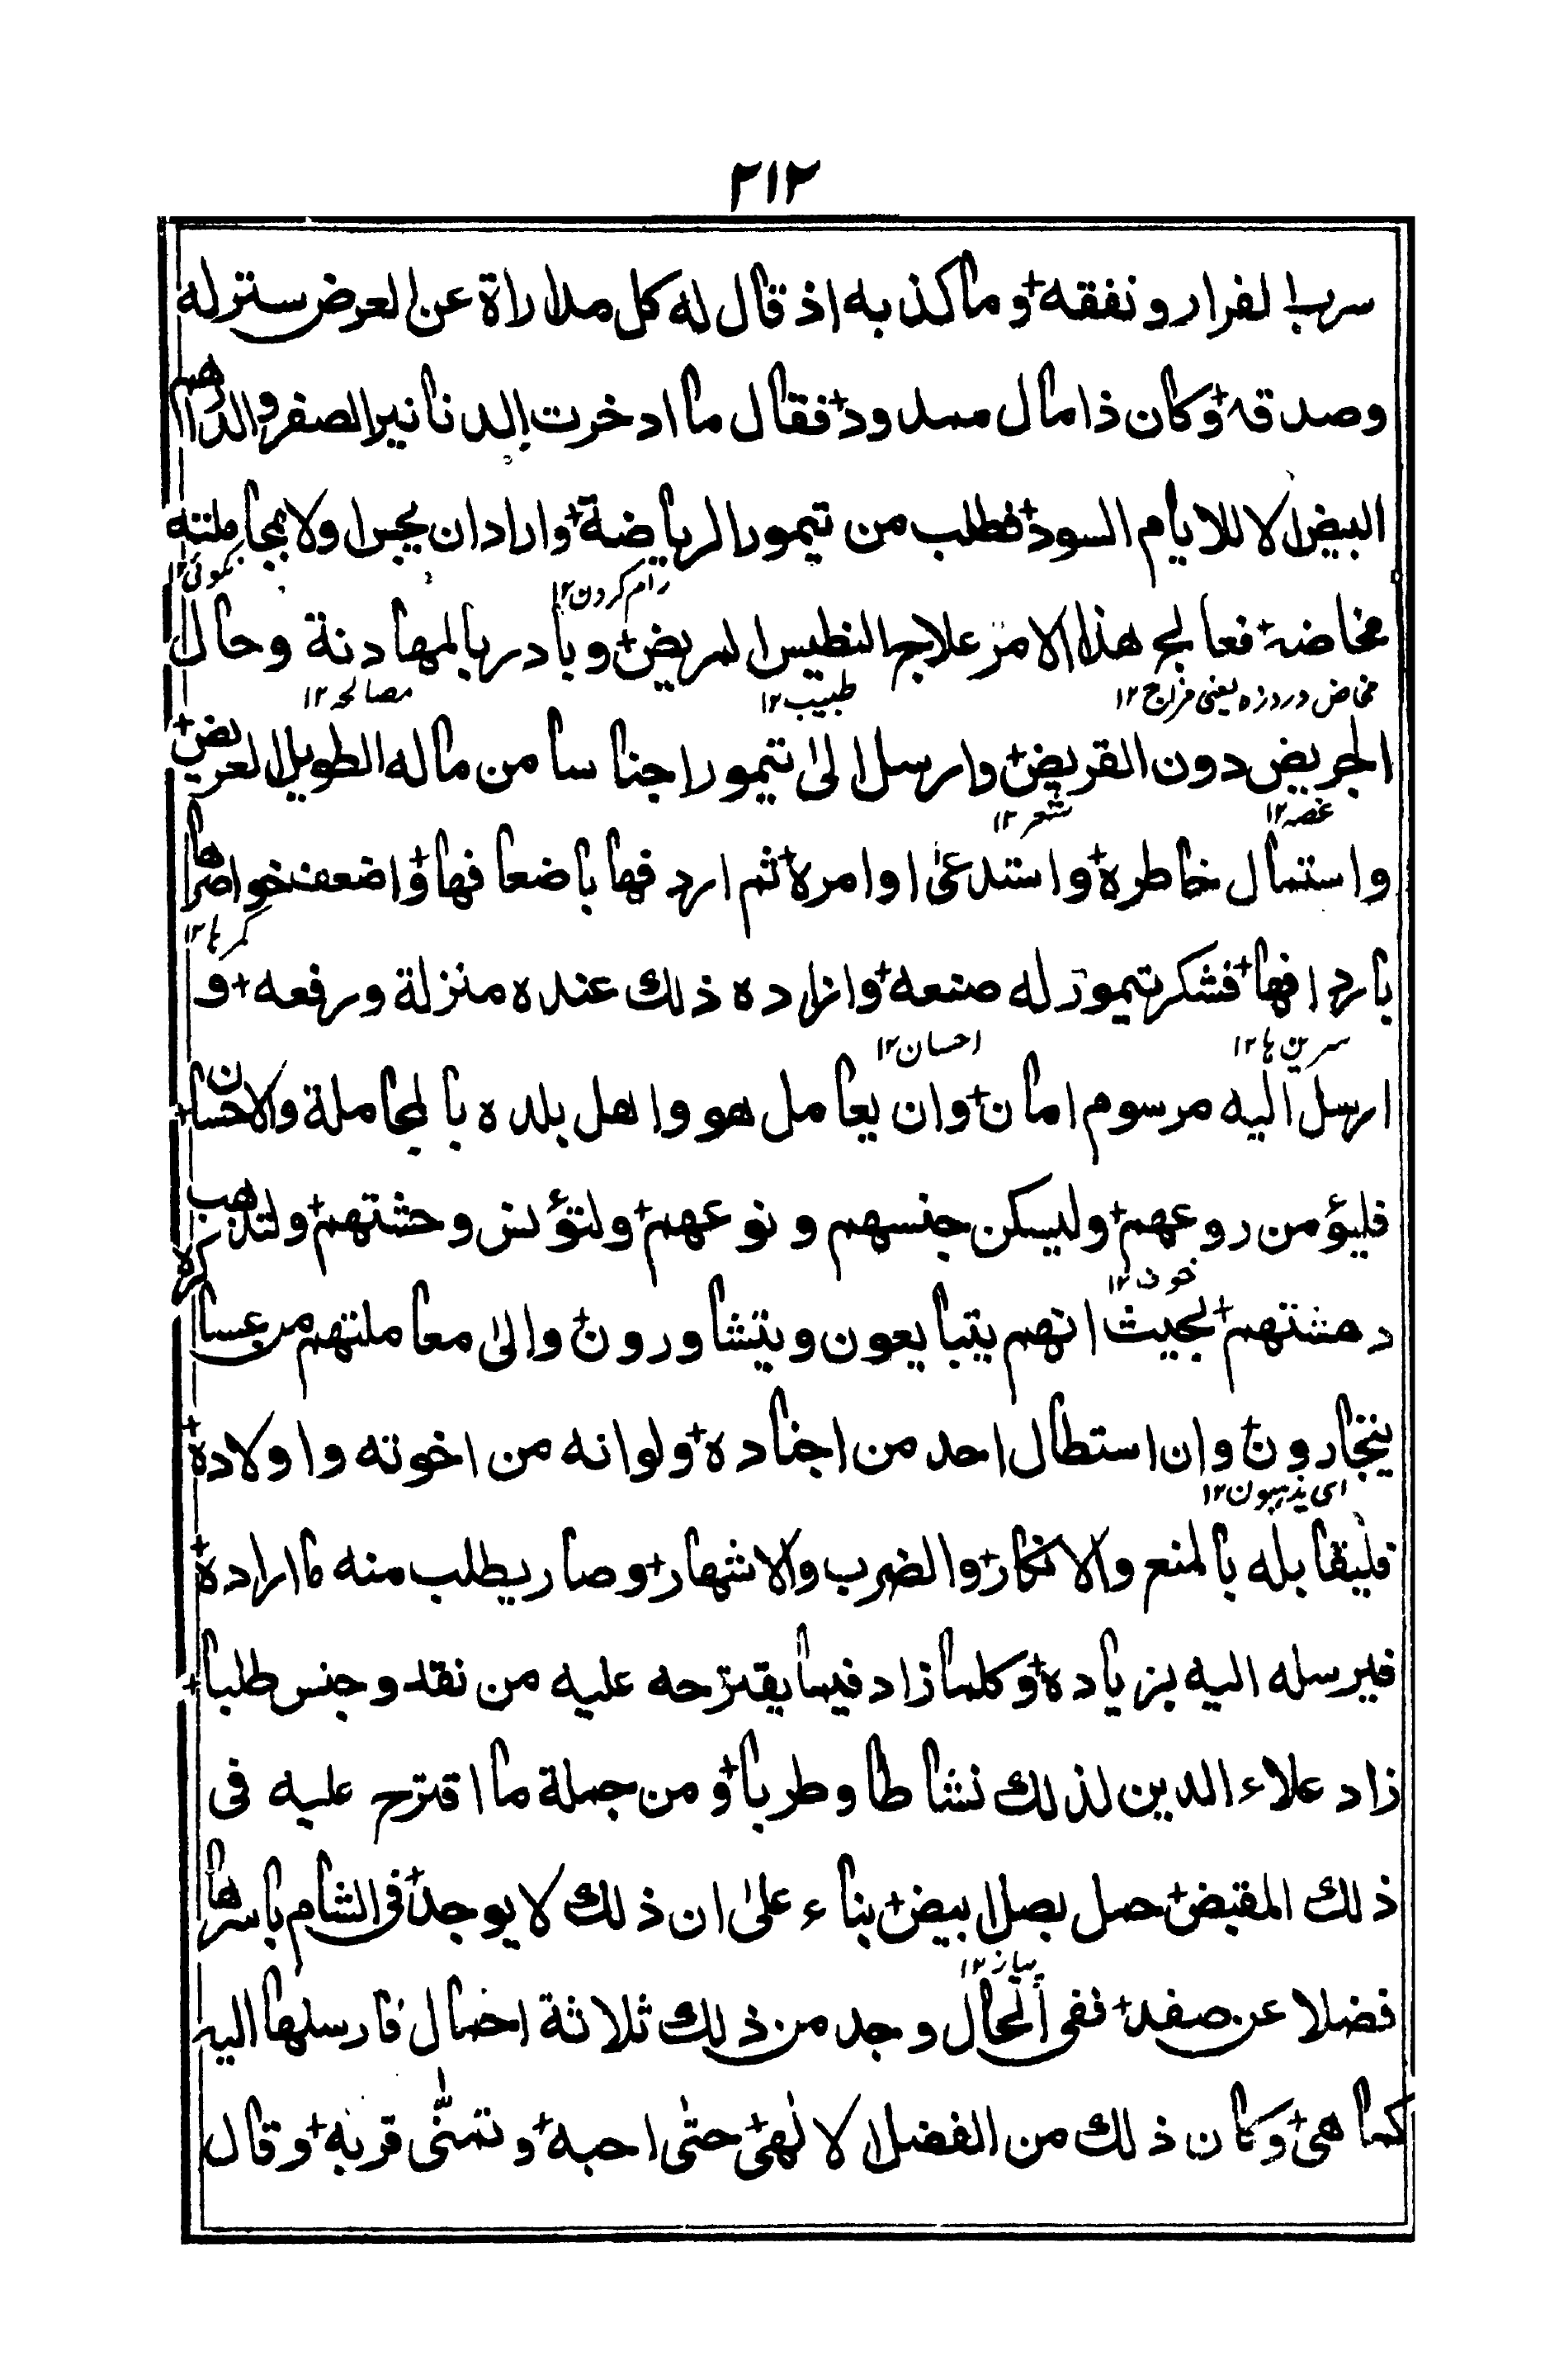 ٢١٢
سرب الفرار و نفقه + وما كذبه اذ قال له كل مداراة عن العرض ستر له
وصدقه + وكان ذا مال ممدود + فقال ما ادخرت الدنانير الصفر والدراهم
البيض الا للايام السود + فطلب من تيمور الرياضة + واراد ان يجبر اولا بمجاملته
رام كردن ١٢ نكوئى ١٢
مخاضه + فعالج هذا الامر علاج النطيس المريض + وبادر بالمهادنة وحال
مخاض دردزه يعنى مزاج ١٢ طبيب ١٢ مصالحه ١٢
الجريض دون القريض + وارسل الى تيمور اجناسا من ماله الطويل العريض +
غصه ١٢ شعر ١٢
واستمال خاطره + واستدعى اوامره + ثم اردفها باضعافها + واضعف خواصرها
كمرها ١٢
باردافها + فشكر تيمور له صنعه + وازداده ذلك عنده منزلة ورفعه + و
سرين ها ١٢ احسان ١٢
ارسل اليه مرسوم امان + وان يعامل هو واهل بلده بالمجاملة والاحسان +
فليؤمن روعهم + وليسكن جنسهم ونوعهم + ولتؤنس وحشتهم + ولتذهب
خوف ١٢
دهشتهم + بحيث انهم يتبايعون ويتشاورون + والى معاملتهم مع عساكره
يتجارون + وان استطال احد من اجناده + ولو انه من اخوته واولاده +
اى يذهبون ١٢
فليقابله بالمنع والانكار + والضرب والاشهار + وصار يطلب منه ما اراده +
فيرسله اليه بزياده + وكلما زاد فيما يقترحه عليه من نقد وجنس طلبا +
زاد علاء الدين لذلك نشاطا وطربا + ومن جملة ما اقترح عليه فى
ذلك المقبض + حمل بصل ابيض + بناء على ان ذلك لا يوجد فى الشام باسرها
پياز ١٢
فضلا عن صفد + ففى الحال وجد من ذلك ثلاثة احمال فارسلها اليه
كما هى + وكان ذلك من الفضل الالهى + حتى احبه + وتمنّى قربه + وقال